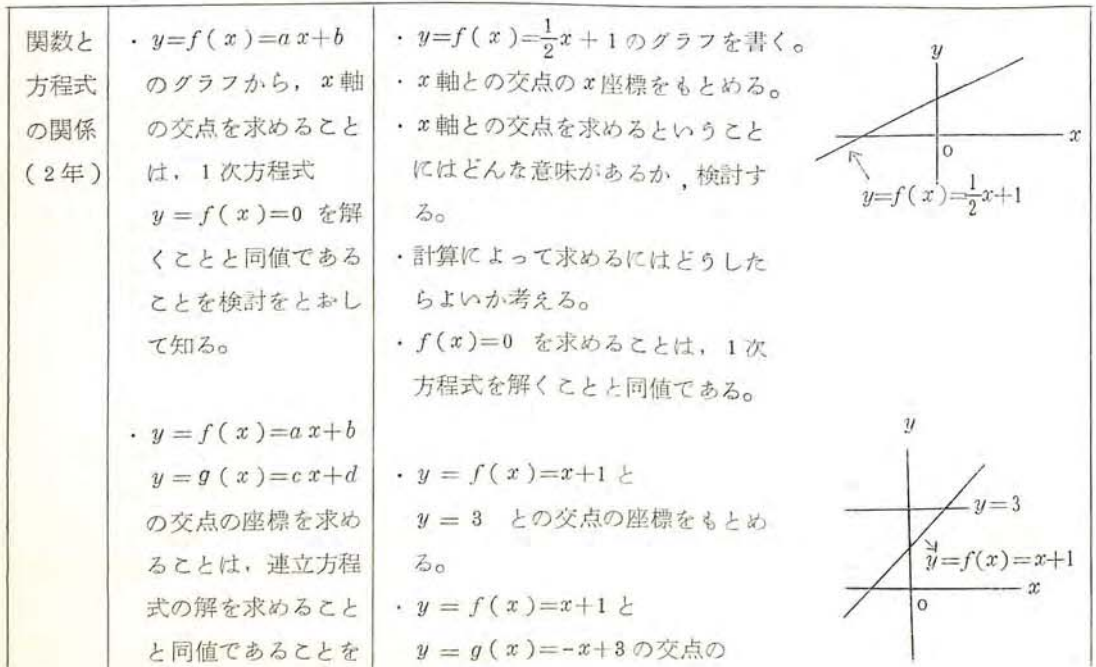 関数と
方程式
の関係
(2年)
・y=f(x)=ax+b
のグラフから，x軸
の交点を求めること
は，1次方程式
y=f(x)=0 を解
くことと同値である
ことを検討をとおし
て知る。
・y=f(x)=ax+b
y=g(x)=cx+d
の交点の座標を求め
ることは，連立方程
式の解を求めること
と同値であることを
・y=f(x)=\frac{1}{2}x+1のグラフを書く。
・x軸との交点のx座標をもとめる。
・x軸との交点を求めるということ
にはどんな意味があるか，検討す
る。
・計算によって求めるにはどうした
らよいか考える。
・f(x)=0 を求めることは，1次
方程式を解くことと同値である。
・y=f(x)=x+1と
y=3 との交点の座標をもとめ
る。
・y=f(x)=x+1と
y=g(x)=-x+3の交点の
y
x
0
y=f(x)=\frac{1}{2}x+1
y
y=3
y=f(x)=x+1
x
0